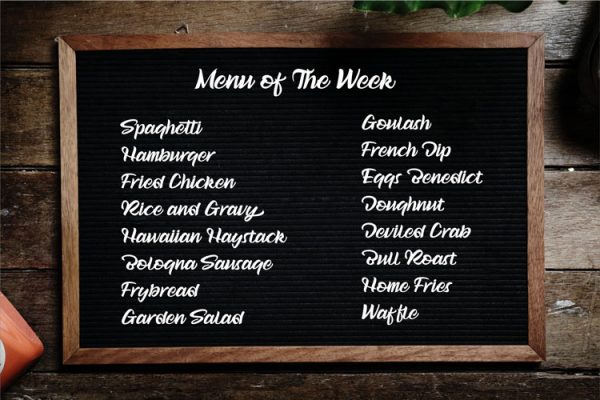 Menu of The Week
Spaghetti
Hamburger
Fried Chicken
Rice and Gravy
Hawaiian Haystack
Bologna Sausage
Frybread
Garden Salad
Goulash
French Dip
Eggs Benedict
Doughnut
Deviled Crab
Bull Roast
Home Fries
Waffle